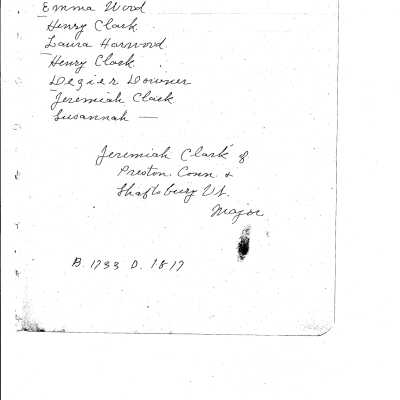 Emma Wood
Henry Clark
Laura Harwood
Henry Clark
Dezier Downer
Jeremiah Clark
Susannah —
Jeremiah Clark of
Preston, Conn &
Shaftsbury Vt.
Major
B. 1733 D. 1817